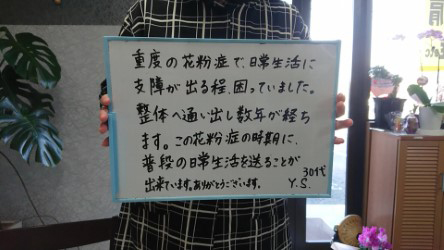 重度の花粉症で、日常生活に
支障が出る程、困っていました。
整体へ通い出し数年が経ち
ます。この花粉症の時期に、
普段の日常生活を送ることが
出来ています。ありがとうございます。
30代
Y.S.